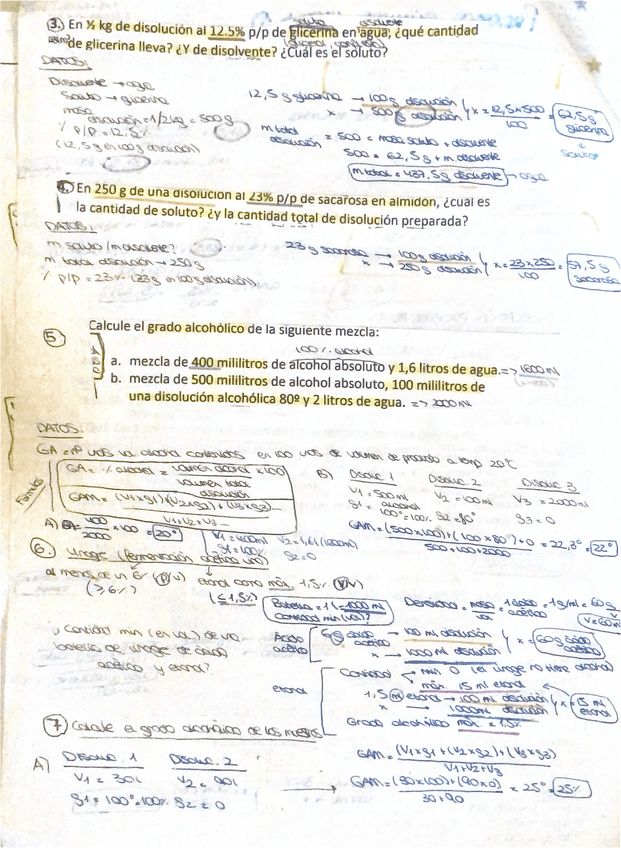 3. En ½ kg de disolución al 12.5% p/p de glicerina en agua, ¿qué cantidad
soluto disolvente
de glicerina lleva? ¿Y de disolvente? ¿Cuál es el soluto?
DATOS:
Disolvente → agua
Soluto → glicerina
masa
disolución = 1/2 kg = 500 g
% p/p = 12,5%
(12,5 g en 100 g disolución)
12,5 g glicerina → 100 g disolución
x → 500 g disolución
x = 12,5 x 500 / 100 = 62,5 g glicerina
soluto
m total disolución = 500 = masa soluto + disolvente
500 = 62,5 g + m. disolvente
m total = 437,5 g disolvente → agua
4. En 250 g de una disolución al 23% p/p de sacarosa en almidón, ¿cuál es
la cantidad de soluto? ¿y la cantidad total de disolución preparada?
DATOS:
m soluto / m disolvente?
m total disolución → 250 g
% p/p = 23% (23 g en 100 g disolución)
23 g sacarosa → 100 g disolución
x → 250 g disolución
x = 23 x 250 / 100 = 57,5 g sacarosa
5. Calcule el grado alcohólico de la siguiente mezcla:
100% alcohol
a. mezcla de 400 mililitros de alcohol absoluto y 1,6 litros de agua. => 1600 ml
b. mezcla de 500 mililitros de alcohol absoluto, 100 mililitros de
una disolución alcohólica 80º y 2 litros de agua. => 2000 ml
DATOS:
GA = nº vols de alcohol contenidos en 100 vols de volumen de producto a temp 20ºC
GA = % alcohol = volumen alcohol / volumen total disolución x 100
GAM = (V1xg1)+(V2xg2)+(V3xg3) / V1+V2+V3
A) GA = 400 / 2000 x 100 = 20º
V1 = 400 ml V2 = 1,6 l (1600 ml)
g1 = 100% g2 = 0
B) Disoluc 1 Disoluc. 2 Disoluc 3
V1 = 500 ml V2 = 100 ml V3 = 2000 ml
g1 = alcohol 100º = 100% g2 = 80º g3 = 0
GAM = (500x100)+(100x80)+0 / 500+100+2000 = 22,3º = 22º
6. Vinagre (fermentación acética vino)
al menos de un 6% (p/v) etanol como máx. 1,5% (v/v)
(≥ 6%) (≤ 1,5%)
Botella = 1 l = 1000 ml
cantidad min (vol)?
Densidad = masa / vol = 1 g/ml = 60 g
V = 60 ml
¿Cantidad min (en vol.) de una
botella de vinagre de ácido
acético y etanol?
Ácido acético
6 g ácido acético → 100 ml disolución
x → 1000 ml disolución
x = 60 g ácido acético
etanol
Cantidad → min 0 (el vinagre no tiene alcohol)
máx. 15 ml etanol
1,5 ml etanol → 100 ml disolución
x → 1000 ml disolución
x = 15 ml etanol
Grado alcohólico máx. = 1,5%
7. Calcule el grado alcohólico de las mezclas
A) Disoluc. 1 Disoluc. 2
V1 = 30 l V2 = 90 l
g1 = 100º = 100% g2 = 0
GAM = (V1xg1)+(V2xg2)+(V3xg3) / V1+V2+V3
GAM = (30x100)+(90x0) / 30+90 = 25º = 25%